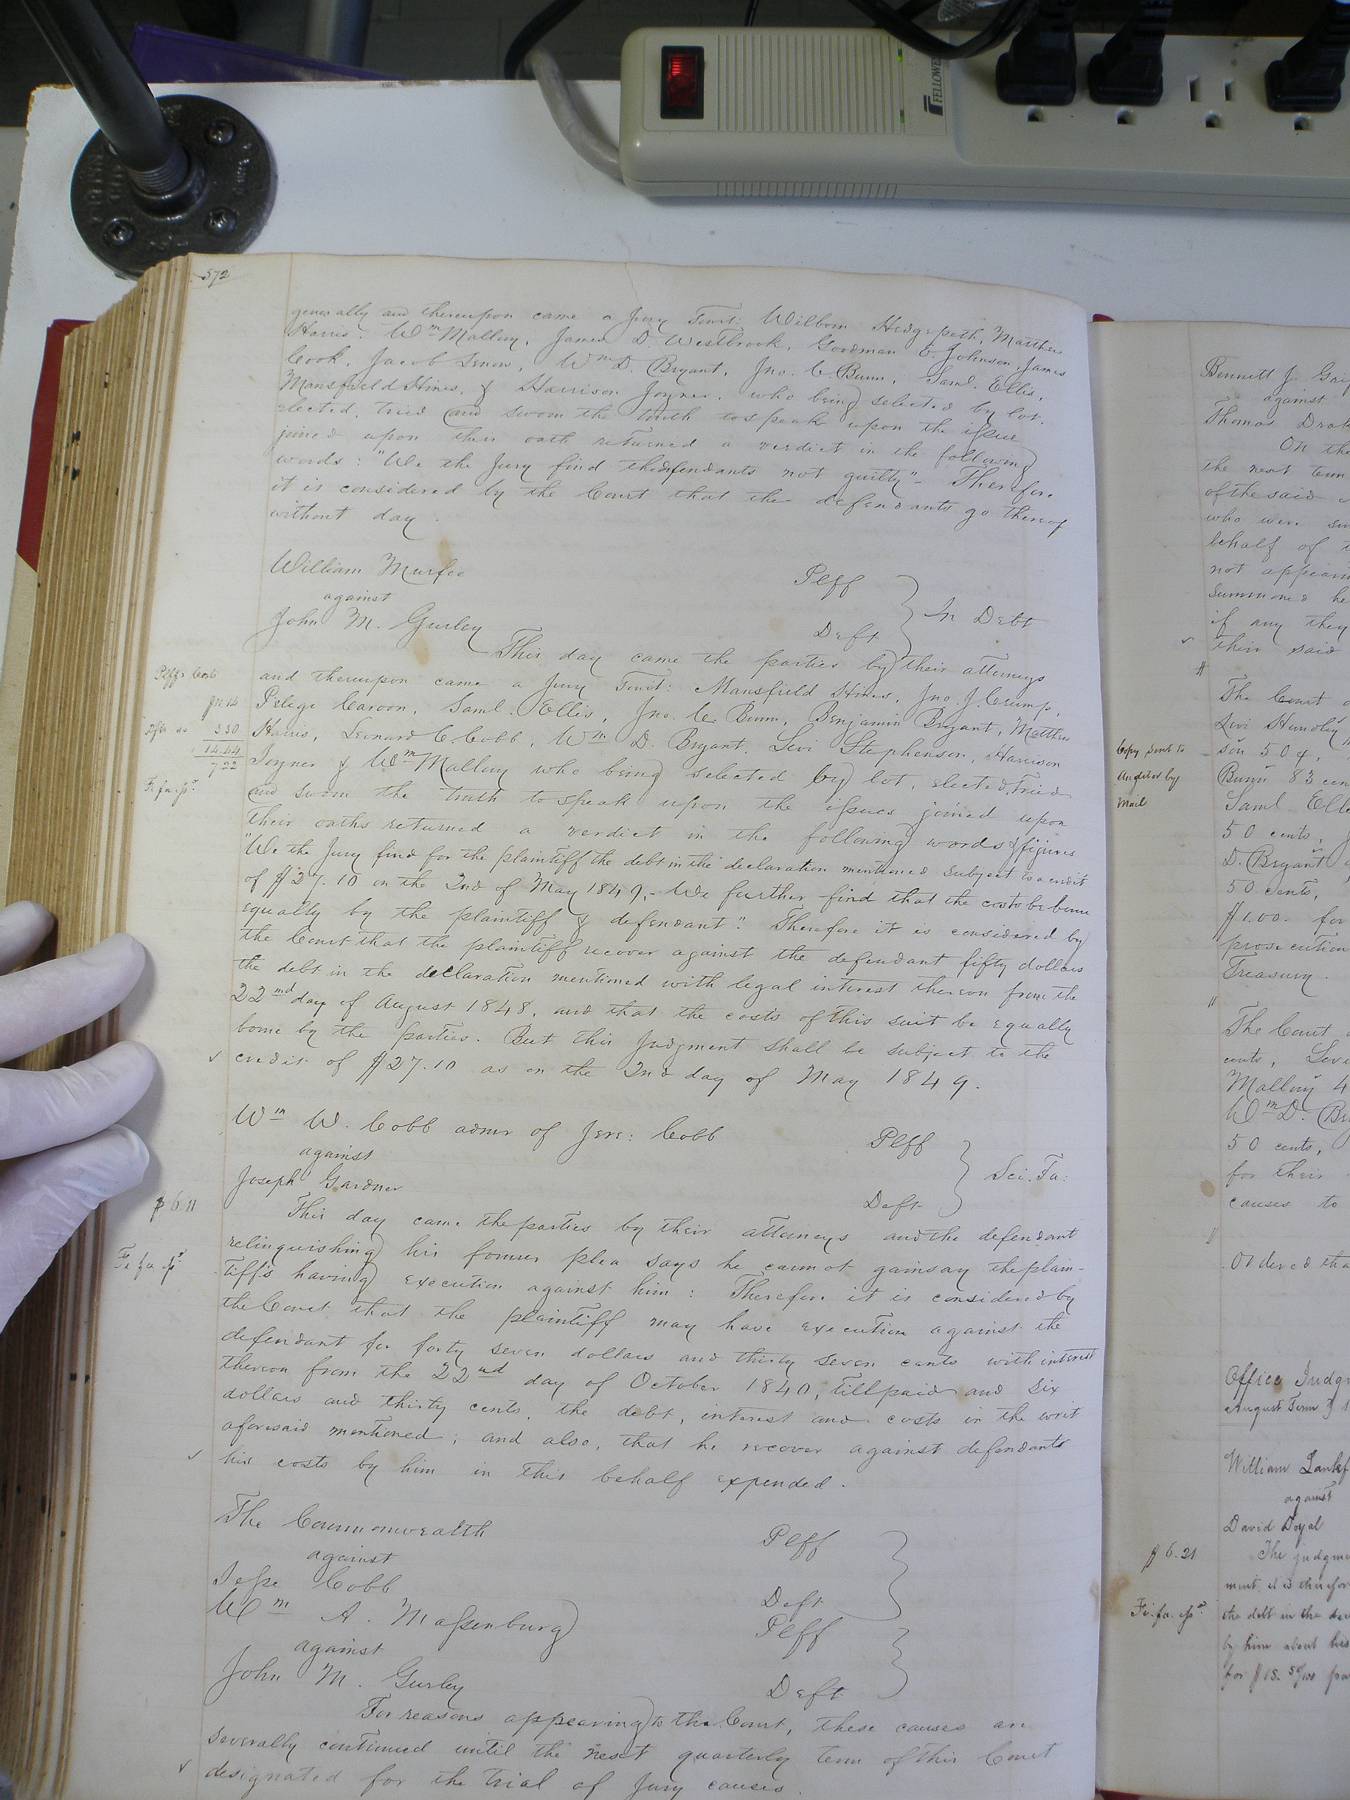 FELLOWES
572
generally and thereupon came a Jury Towit: Wilborn Hedgepeth, Matthew
Harris, Wm Mallory, James D. Westbrook, Goodman E. Johnson, James
Cook, Jacob Snow, Wm D. Bryant, Jno. C. Bunn, Saml. Ellis,
Mansfield Hines, & Harrison Joyner, who being selected by lot,
elected, tried and sworn the truth to speak upon the issue
joined upon their oath returned a verdict in the following
words: "We the Jury find the defendants not guilty" - Therefore
it is considered by the Court that the defendants go thereof
without day
William Murfee Plff
against
John M. Gurley Deft
In Debt
This day came the parties by their attorneys
and thereupon came a Jury Towit: Mansfield Hines, Jno. J. Crump,
Pelege Caroon, Saml. Ellis, Jno. C. Bunn, Benjamin Bryant, Matthew
Harris, Leonard C. Cobb, Wm D. Bryant, Levi Stephenson, Harrison
Joyner & Wm Mallory who being selected by lot, elected, tried
and sworn the truth to speak upon the issues joined upon
their oaths returned a verdict in the following words & figures
"We the Jury find for the plaintiff the debt in the declaration mentioned subject to a credit
of $27.10 on the 2nd of May 1849, - We further find that the costs be borne
equally by the plaintiff & defendant". Therefore it is considered by
the Court that the plaintiff recover against the defendant fifty dollars
the debt in the declaration mentioned with legal interest thereon from the
22nd day of August 1848, and that the costs of this suit be equally
borne by the parties. But this Judgment shall be subject to the
credit of $27.10 as on the 2nd day of May 1849.
Plffs Cost
Defts do 3.30
14.44
7.22
Fi. fa. issd
Wm W. Cobb admr of Jere: Cobb Plff
against
Joseph Gardner Deft
Sci. Fa:
$6.11
Fi. fa. issd
This day came the parties by their attorneys and the defendant
relinquishing his former plea says he cannot gainsay the plain-
tiff's having execution against him: Therefore it is considered by
the Court that the plaintiff may have execution against the
defendant for forty seven dollars and thirty seven cents with interest
thereon from the 22nd day of October 1840, till paid and six
dollars and thirty cents, the debt, interest and costs in the writ
aforesaid mentioned; and also, that he recover against defendants
his costs by him in this behalf expended.
The Commonwealth Plff
against
Jesse Cobb Deft
Wm A. Massenburg Plff
against
John M. Gurley Deft
For reasons appearing to the Court, these causes are
severally continued until the next quarterly term of this Court
designated for the trial of Jury causes.
Bennett J. Gri
against
Thomas Drak
On the
the next
of the said
who were
behalf of
not appear
summoned he
if any they
their said
The Court
Levi
son 50
Copy sent to
Auditor by
Mail
Bunn 83 cen
Saml Elle
50 cents,
D. Bryant
50 cents,
$1.00 for
prosecution
Treasury.
The Court
cents, Levi
Mallory 4
Wm D. Br
50 cents,
for their
causes to
Ordered tha
Office Judgm
August Term
William Lankf
against
David Doyal
$6.21
Fi. fa. issd
The judgme
ment, it is therefor
the debt in the dec
by him about his
for $18.